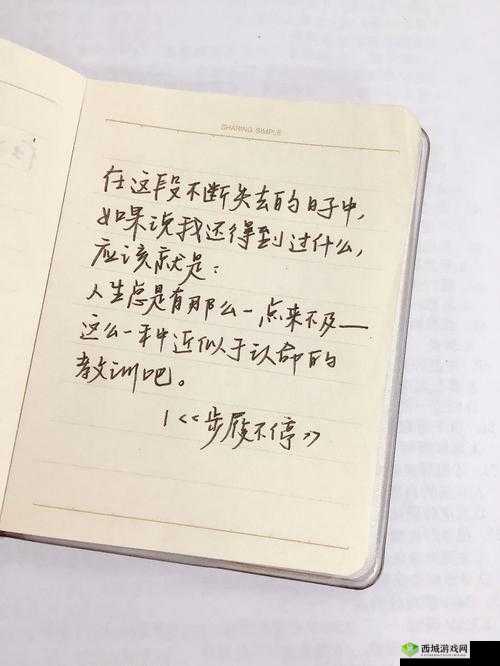 SHARING SIMPLE
在这段不断失去的日子中，
如果说我还得到过什么，
应该就是：
人生总是有那么一点来不及——
这么一种近似于认命的
教训吧。
|《步履不停》
西城游戏网